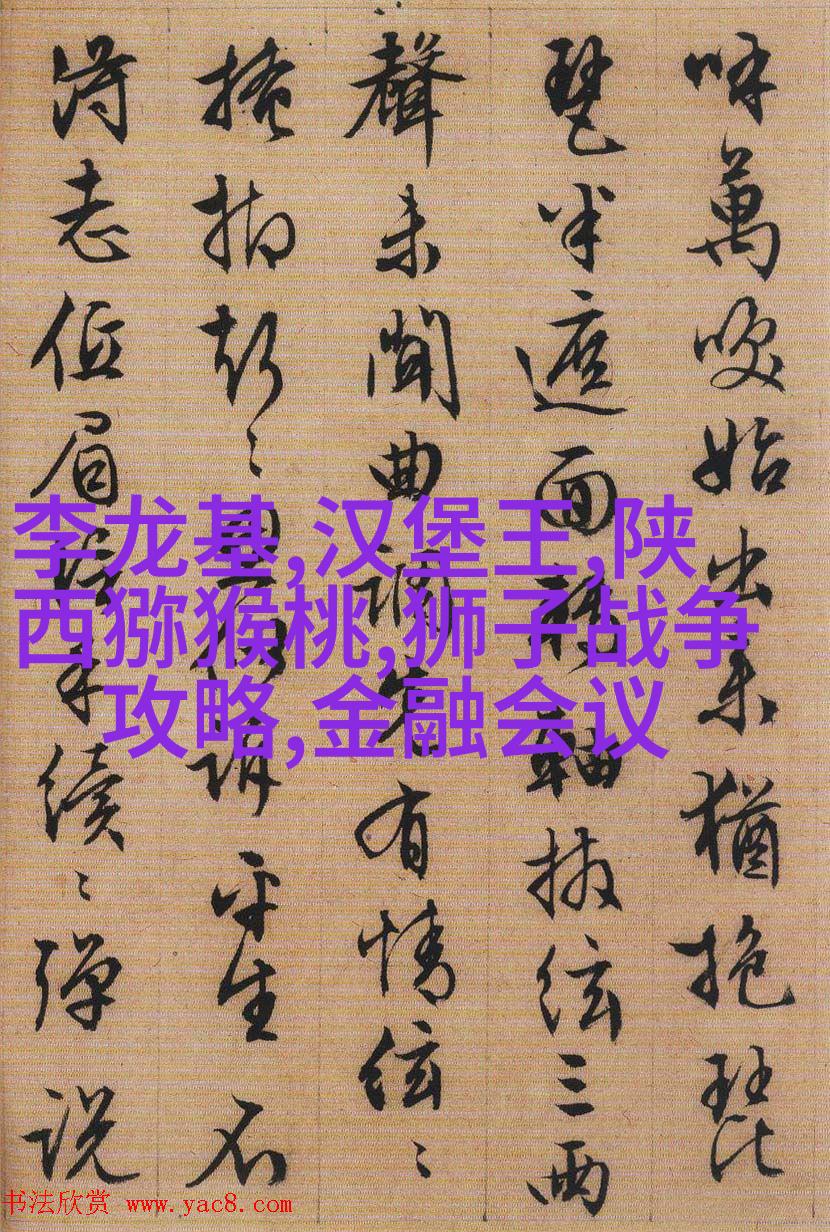 呼萬喚始出来猶抱琵
琶半遮面轉軸撥絃三兩
聲未聞曲調先有情絃〻
掩抑声〻思訴平生不
得志低眉信手續〻彈説
李龙基,汉堡王,陕
西猕猴桃,狮子战争
攻略,金融会议
书法欣赏 www.yac8.com